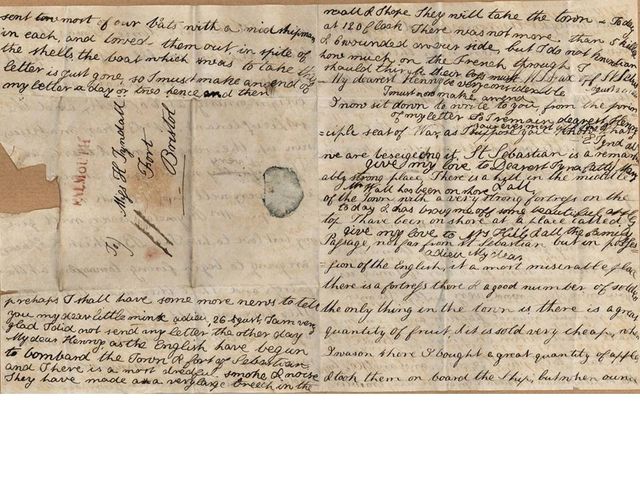 sent two most of our boats with a midshipman
in each, and towed them out, in spite of
the shells the boat which was to take this
letter is just gone, so I must make an end of
my letter a day or two hence and then
FALMOUTH
To
Miss H Tyndall
Fort
Bristol
perhaps I shall have some more news to tell
you my dear little mink adieu 26 August I am very
glad I did not send my letter the other day
My dear Henny as the English have begun
to bombard the Town & fort of Sebastian
and There is a most dreadful smoke & noise
They have made a very large breech in the
wall & I hope They will take the town - Today
at 12 O Clock There was not more than 5 killed
& 6 wounded on our side, but I do not
how much on the French though I
should think their loss must
My dearest Henny very considerable
I must now make an end
I now sit down to write to you, from the
of my letter & remain dearest
=ciple seat of War, as I suppose you
we are beseigeing it, St Sebastian is a remark
give my love to Dearest
ably strong place, There is a hill in the middle
Mr Wall has been on shore
of the Town with a very strong fortress on the
to day & has brought off some beautiful
top I have been on shore at a place called
give my love to & all the family
Passage, not far from St Sebastian but in posses
adieu My dear
=sion of the English, it a most miserable place
there is a fortress there & a good number of
the only thing in the town is there is a great
quantity of fruit & it is sold very cheap,
I was on shore I bought a great quantity of
& took them on board the Ship, but when